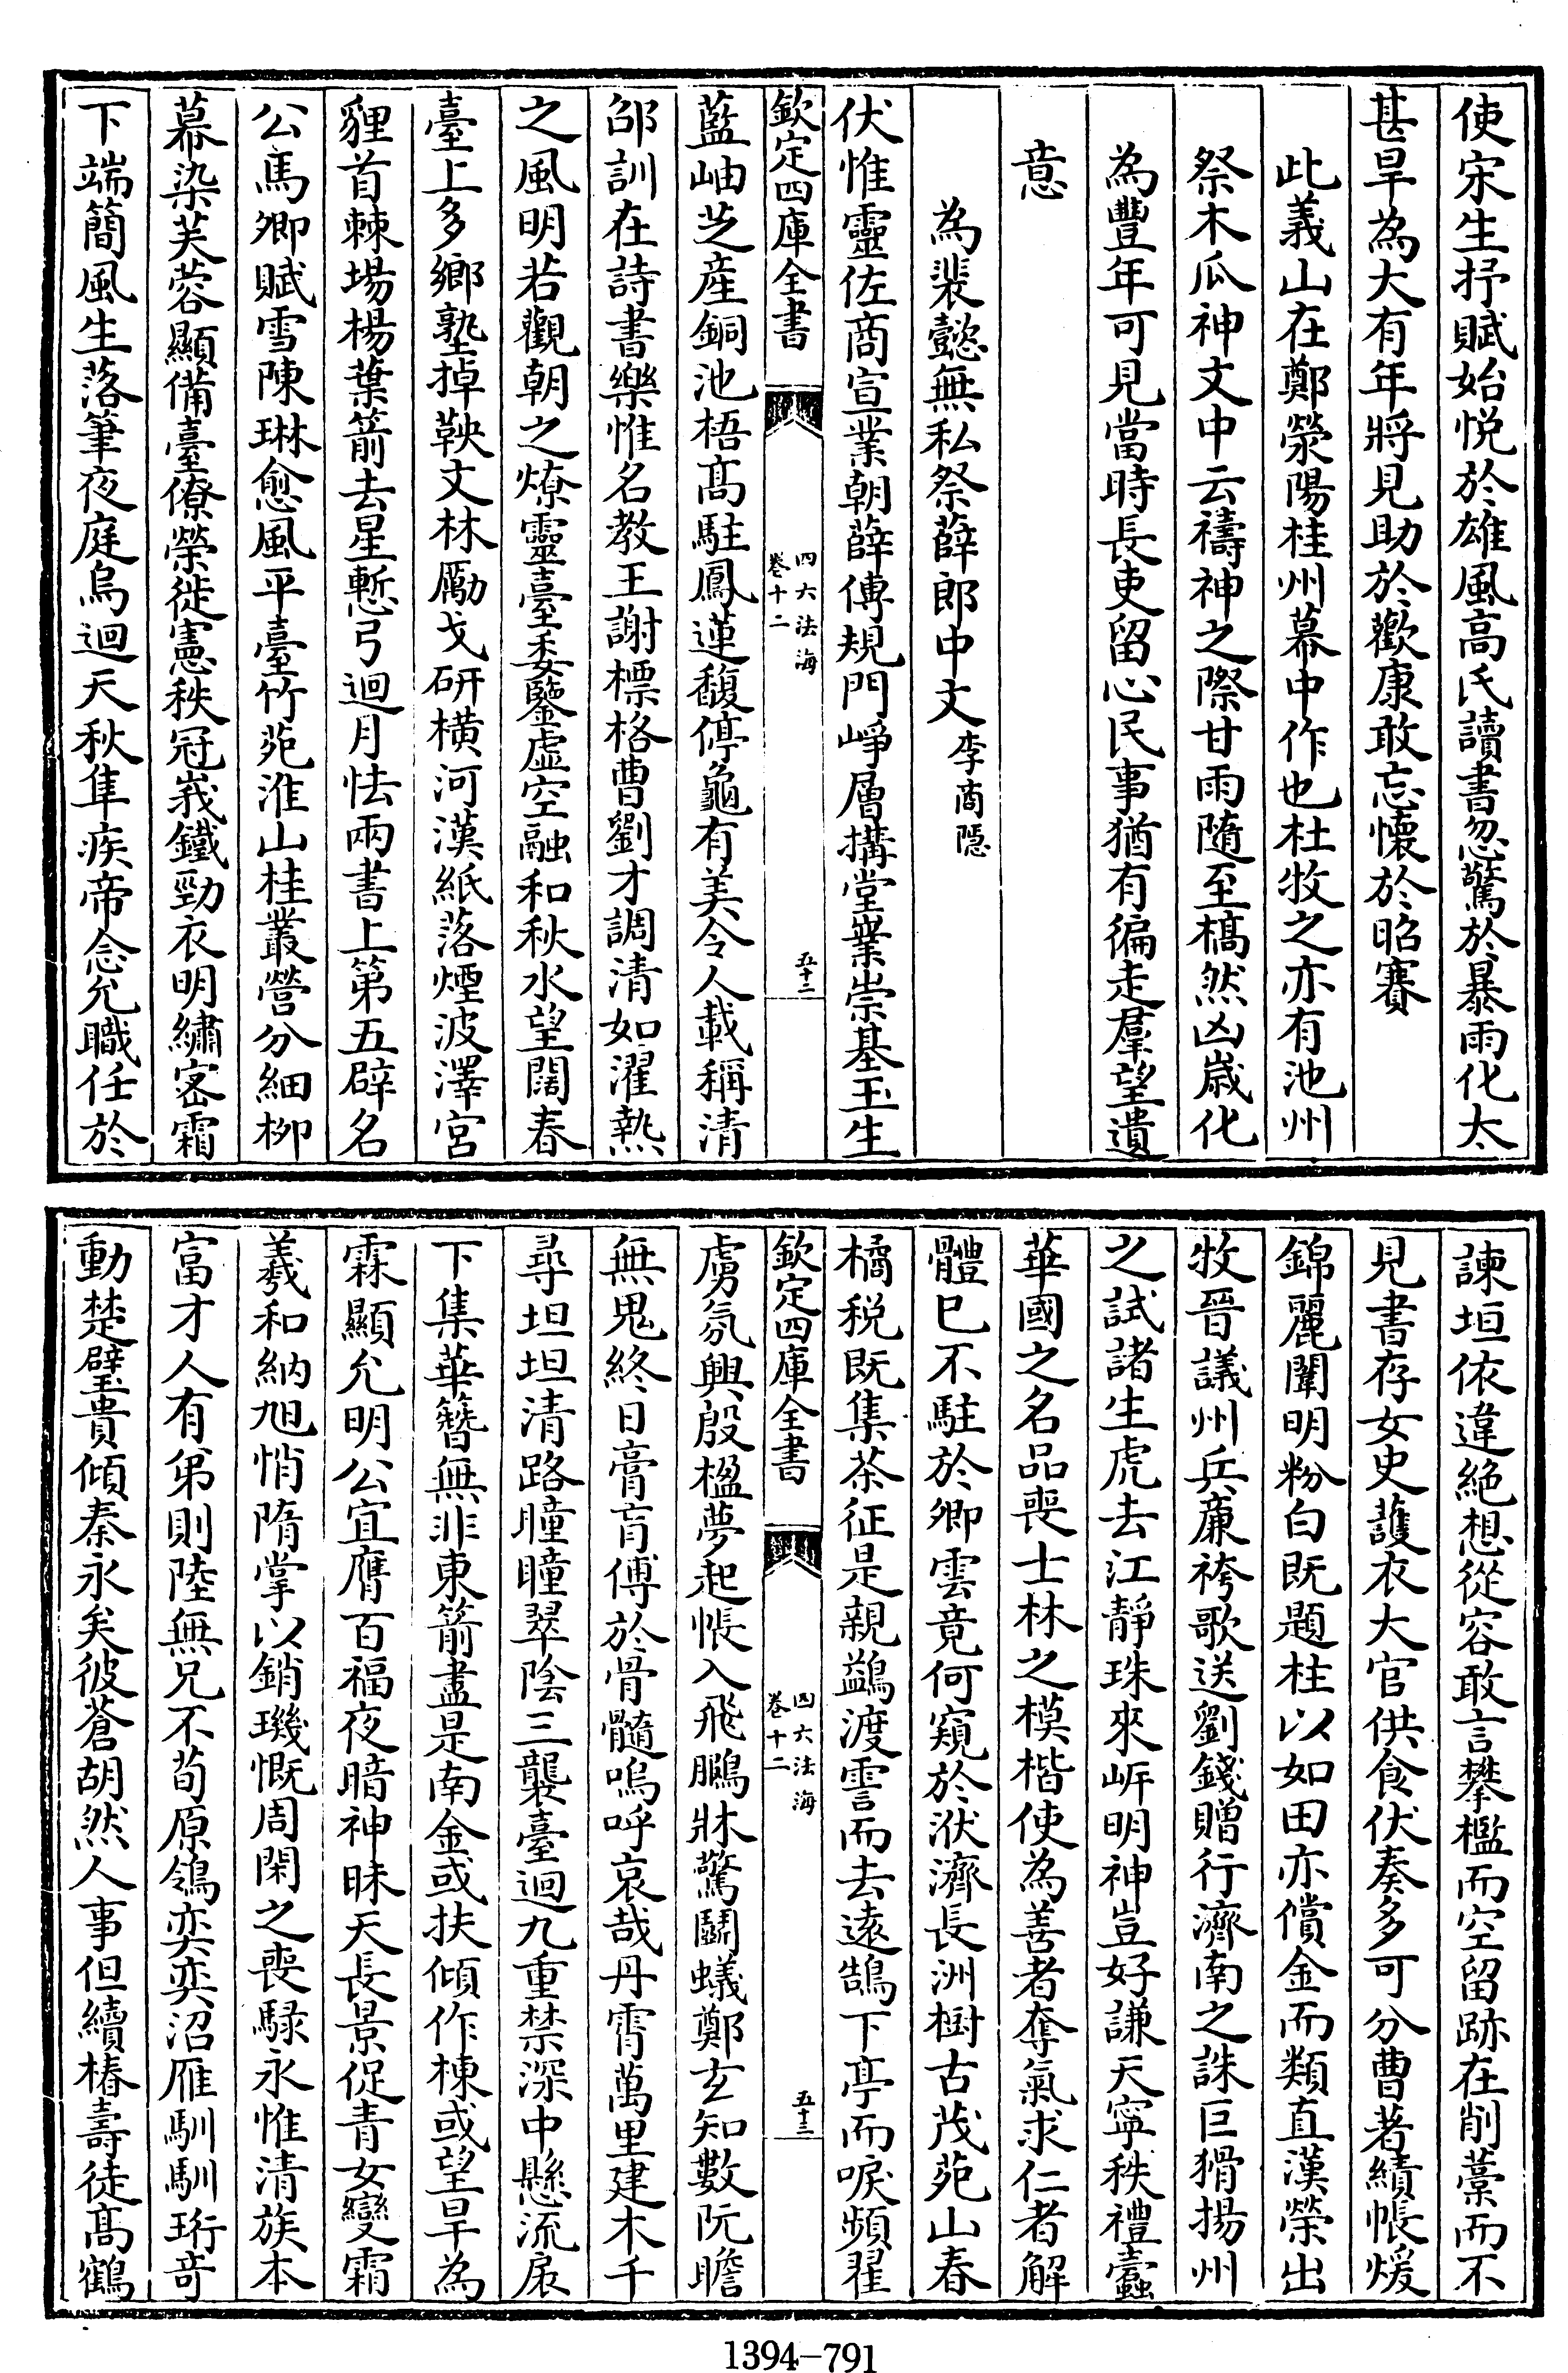 使宋生抒賦始悦於雄風高氏讀書忽驚於暴雨化太
甚旱為大有年將見助於歡康敢忘懷於昭賽
此義山在鄭滎陽桂州幕中作也杜牧之亦有池州
祭木瓜神文中云禱神之際甘雨隨至槁然凶歲化
為豐年可見當時長吏留心民事猶有徧走羣望遺
意
為裴懿無私祭薛郎中文李商隱
伏惟靈佐商宣業朝薛傅規門崢層搆堂業崇基玉生
欽定四庫全書
四六法海
卷十二
五十二
藍岫芝産銅池梧高駐鳳蓮馥停龜有美令人載稱清
邵訓在詩書樂惟名教王謝標格曹劉才調清如濯熱
之風明若觀朝之燎靈臺委鑒虛空融和秋水望闊春
臺上多鄉塾掉鞅文林勵戈研横河漢紙落煙波澤宮
貍首棘場楊葉箭去星慙弓迴月怯兩書上第五辟名
公馬卿賦雪陳琳愈風平臺竹苑淮山桂叢營分細柳
幕染芙蓉顯備臺僚榮徙憲秩冠峩鐵勁衣明繡密霜
下端簡風生落筆夜庭烏迴天秋隼疾帝念允職任於
諫垣依違絶想從容敢言攀檻而空留跡在削藁而不
見書存女史護衣大官供食伏奏多可分曹著績帳煖
錦麗闈明粉白既題柱以如田亦償金而類直漢榮出
牧晉議州兵亷袴歌送劉錢贈行濟南之誅巨猾揚州
之試諸生虎去江靜珠來㟁明神豈好謙天寧秩禮蠹
華國之名品喪士林之模楷使為善者奪氣求仁者解
體巳不駐於卿雲竟何窺於洑濟長洲樹古茂苑山春
橘税既集茶征是親鷁渡雲而去遠鵠下亭而唳頻翟
欽定四庫全書
四六法海
卷十二
五十三
虜氛興殷楹夢起帳入飛鵩牀驚鬭蟻鄭玄知數阮瞻
無鬼終日膏肓傅於骨髓嗚呼哀哉丹霄萬里建木千
尋坦坦清路瞳瞳翠陰三襲臺迴九重禁深中懸流扆
下集華簪無非東箭盡是南金或扶傾作棟或望旱為
霖顯允明公宜膺百福夜暗神昧天長景促青女變霜
羲和納旭悄隋掌以銷璣慨周閑之喪騄永惟清族本
富才人有弟則陸無兄不荀原鴒奕奕沼雁馴馴珩竒
動楚璧貴傾秦永矣彼蒼胡然人事但續椿壽徒髙鶴
1394-791